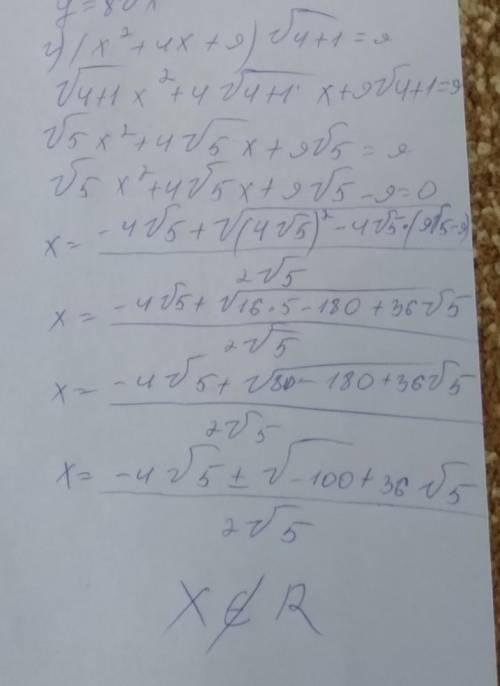 y = 8√x
4) (x² + 4x + 9) √4+1 = 9
√4+1 x² + 4 √4+1 · x + 9√4+1 = 9
√5 x² + 4√5 x + 9√5 = 9
√5 x² + 4√5 x + 9√5 - 9 = 0
x = -4√5 + √(4√5)² - 4√5 · (9√5 - 9)
2√5
x = -4√5 + √16 · 5 - 180 + 36√5
2√5
x = -4√5 + √80 - 180 + 36√5
2√5
x = -4√5 ± √-100 + 36√5
2√5
X ∉ R